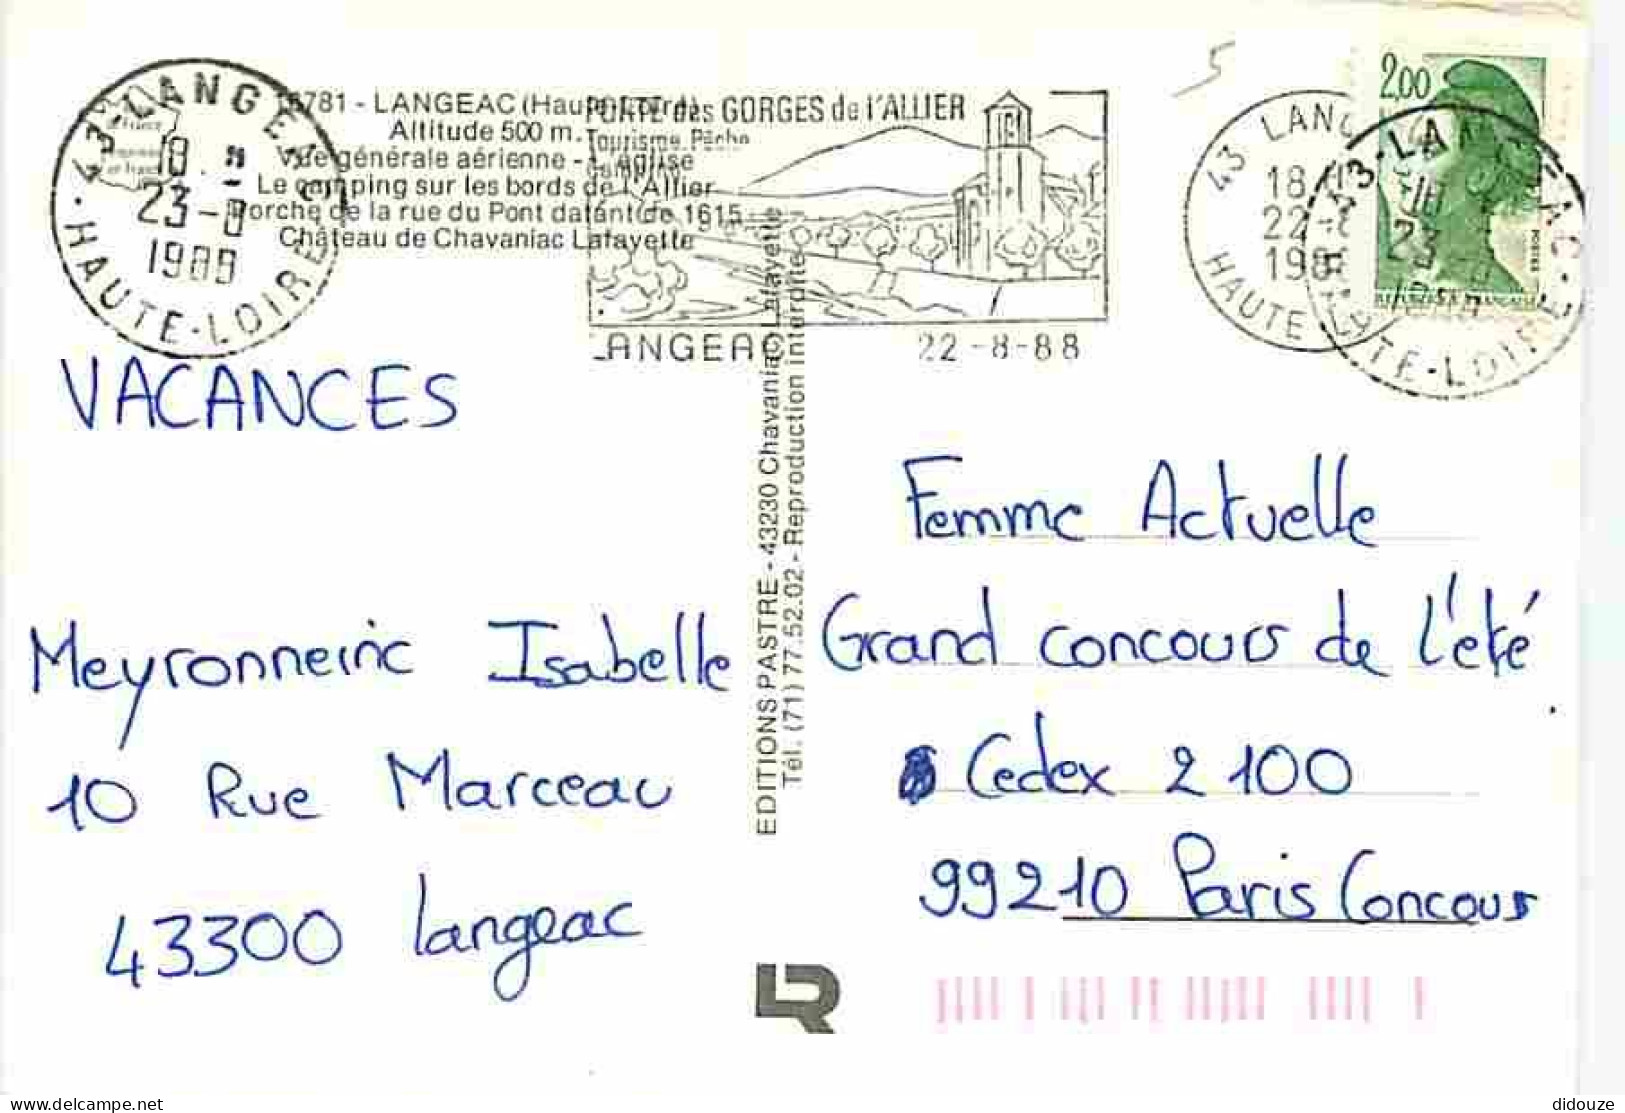 43-LANGEAC
HAUTE-LOIRE
18
23-8
1988
16781 - LANGEAC (Haute-Loire)
Altitude 500 m.
Vue générale aérienne - L'église
Le camping sur les bords de l'Allier
Porche de la rue du Pont datant de 1615
Château de Chavaniac Lafayette
PORTE des GORGES de l'ALLIER
Tourisme Pêche
Camping
LANGEAC 22-8-88
5
43 LANG
18
22-
198
HAUTE LO
2,00
POSTES
43-LANGEAC
18
23
HAUTE-LOIRE
VACANCES
Meyronneinc Isabelle
10 Rue Marceau
43300 Langeac
EDITIONS PASTRE - 43230 Chavaniac Lafayette
Tél. (71) 77.52.02 - Reproduction interdite
Femme Actuelle
Grand concours de l'été
Cedex 2100
99210 Paris Concours
LR
delcampe.net
didouze